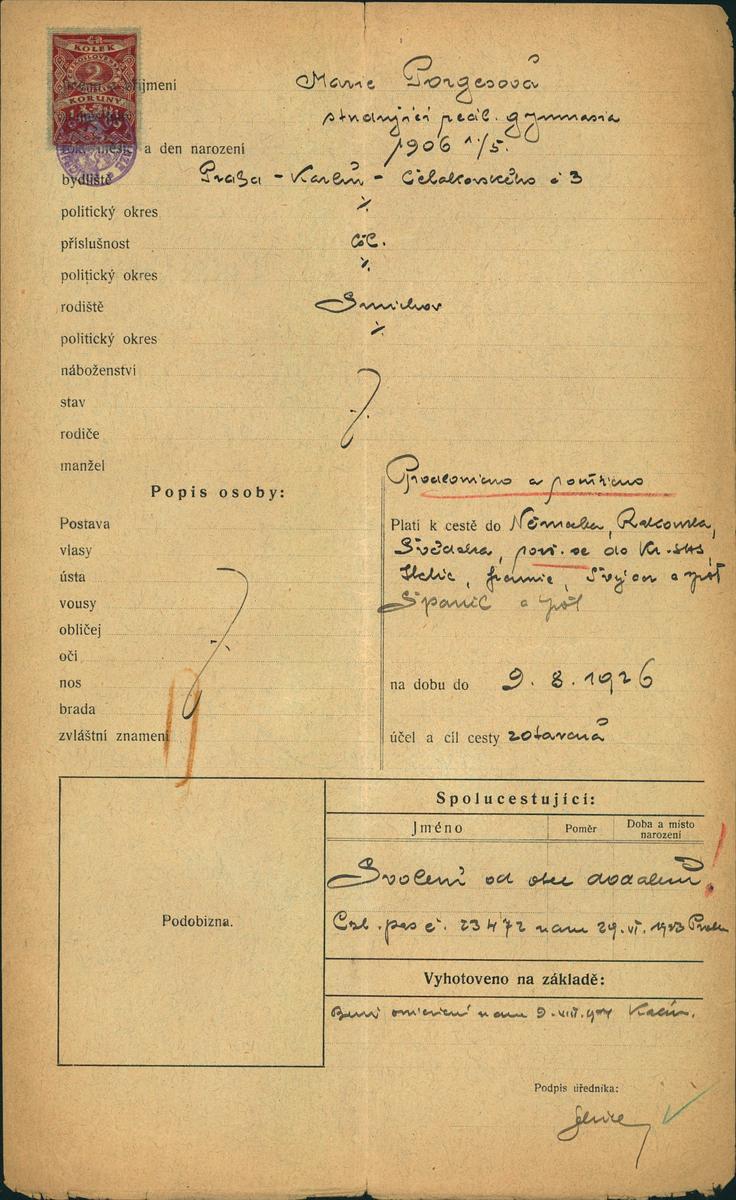 KOLEK
2
KORUNY
příjmení Marie Porgesová
studující reál. gymnasia
a den narození 1906 1/5.
bydliště Praha - Karlín - Čelakovského č 3
politický okres
příslušnost čsl.
politický okres
rodiště Smíchov
politický okres
náboženství
stav
rodiče
manžel
Popis osoby:
Postava
vlasy
ústa
vousy
obličej
oči
nos
brada
zvláštní znamení
Prodlouženo a
Platí k cestě do Německa, Rakouska,
do Kr. SHS,
Italie, francie, a zpět
Španěl a zpět
na dobu do 9. 8. 1926
účel a cíl cesty zotavená
Podobizna.
Spolucestující:
Jméno Poměr Doba a místo narození
Svolení od otce dodáno!
Čsl. pas č. 23472 29. VI. 1923
Vyhotoveno na základě:
9. VIII. Karlín.
Podpis úředníka: